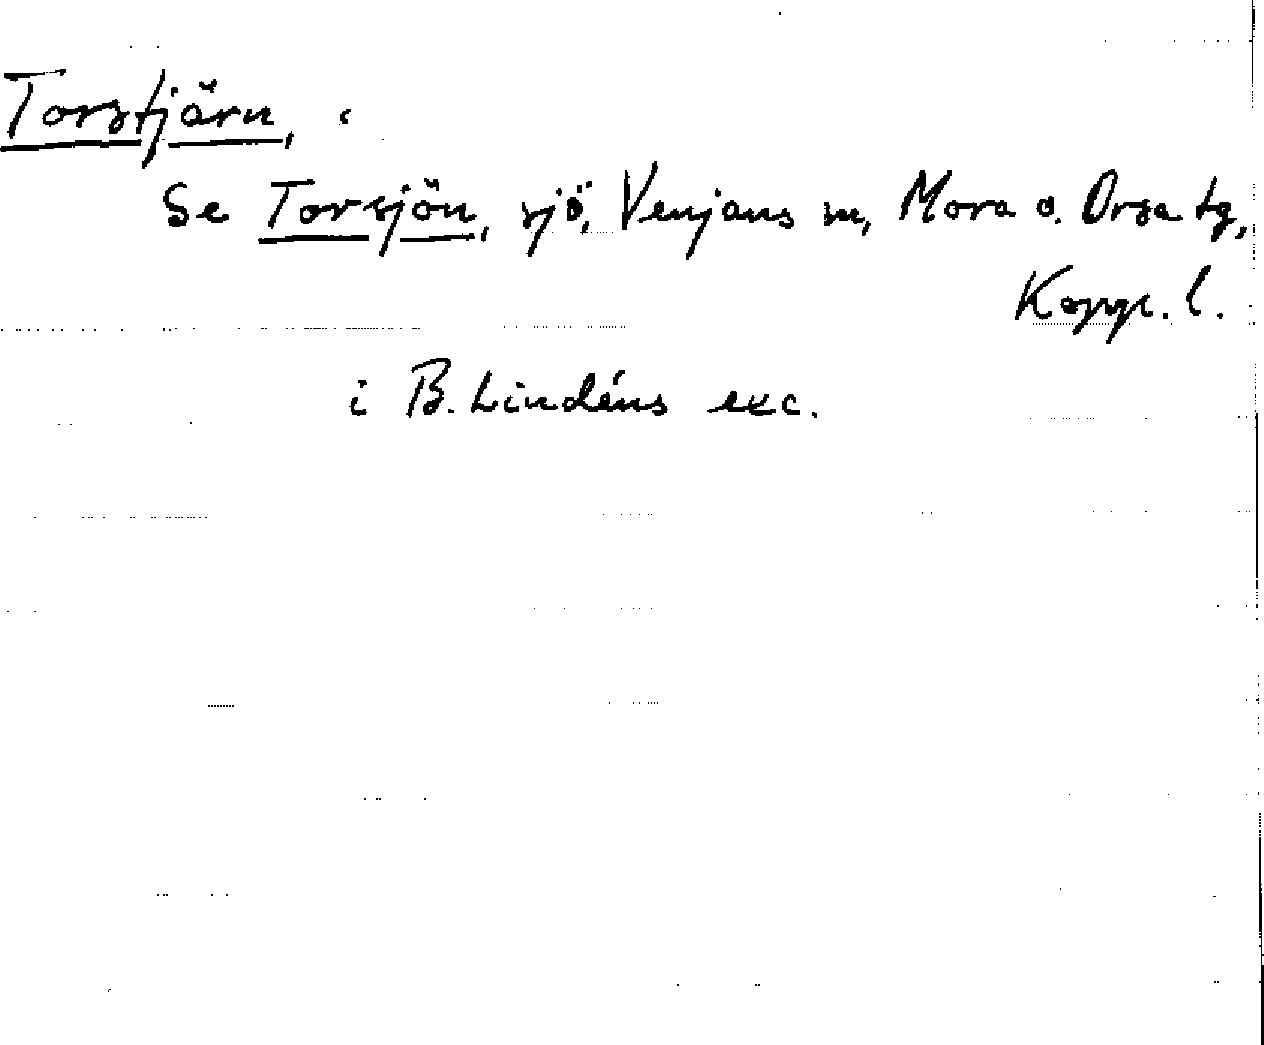 Torstjärn,
Se Torsjön, sjö, Venjans sn, Mora o. Orsa tg,
Kopp. l.
i B. Lindéns exc.